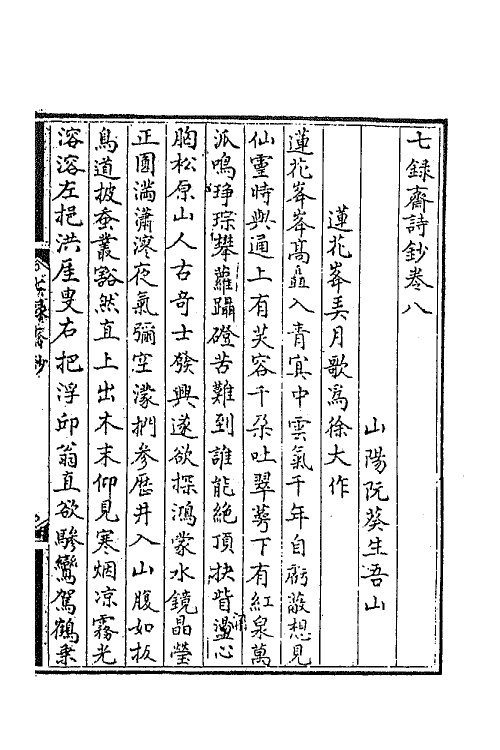 七録齋詩鈔卷八
山陽阮葵生吾山
蓮花峯弄月歌爲徐大作
蓮花峯峯髙矗入青冥中雲氣千年自虧蔽想見
仙靈時與通上有芙容千朶吐翠萼下有紅泉萬
派鳴琤琮攀蘿躡磴苦難到誰能絶頂抉眥盪心
胸松原山人古奇士發興遂欲探鴻蒙水鏡晶瑩
正圓滿瀟漻夜氣彌空濛捫參歴井入山腹如扳
鳥道披蚕叢豁然直上出木末仰見寒烟凉霧光
溶溶左挹洪厓叟右把浮邱翁直欲驂鸞駕鶴乗